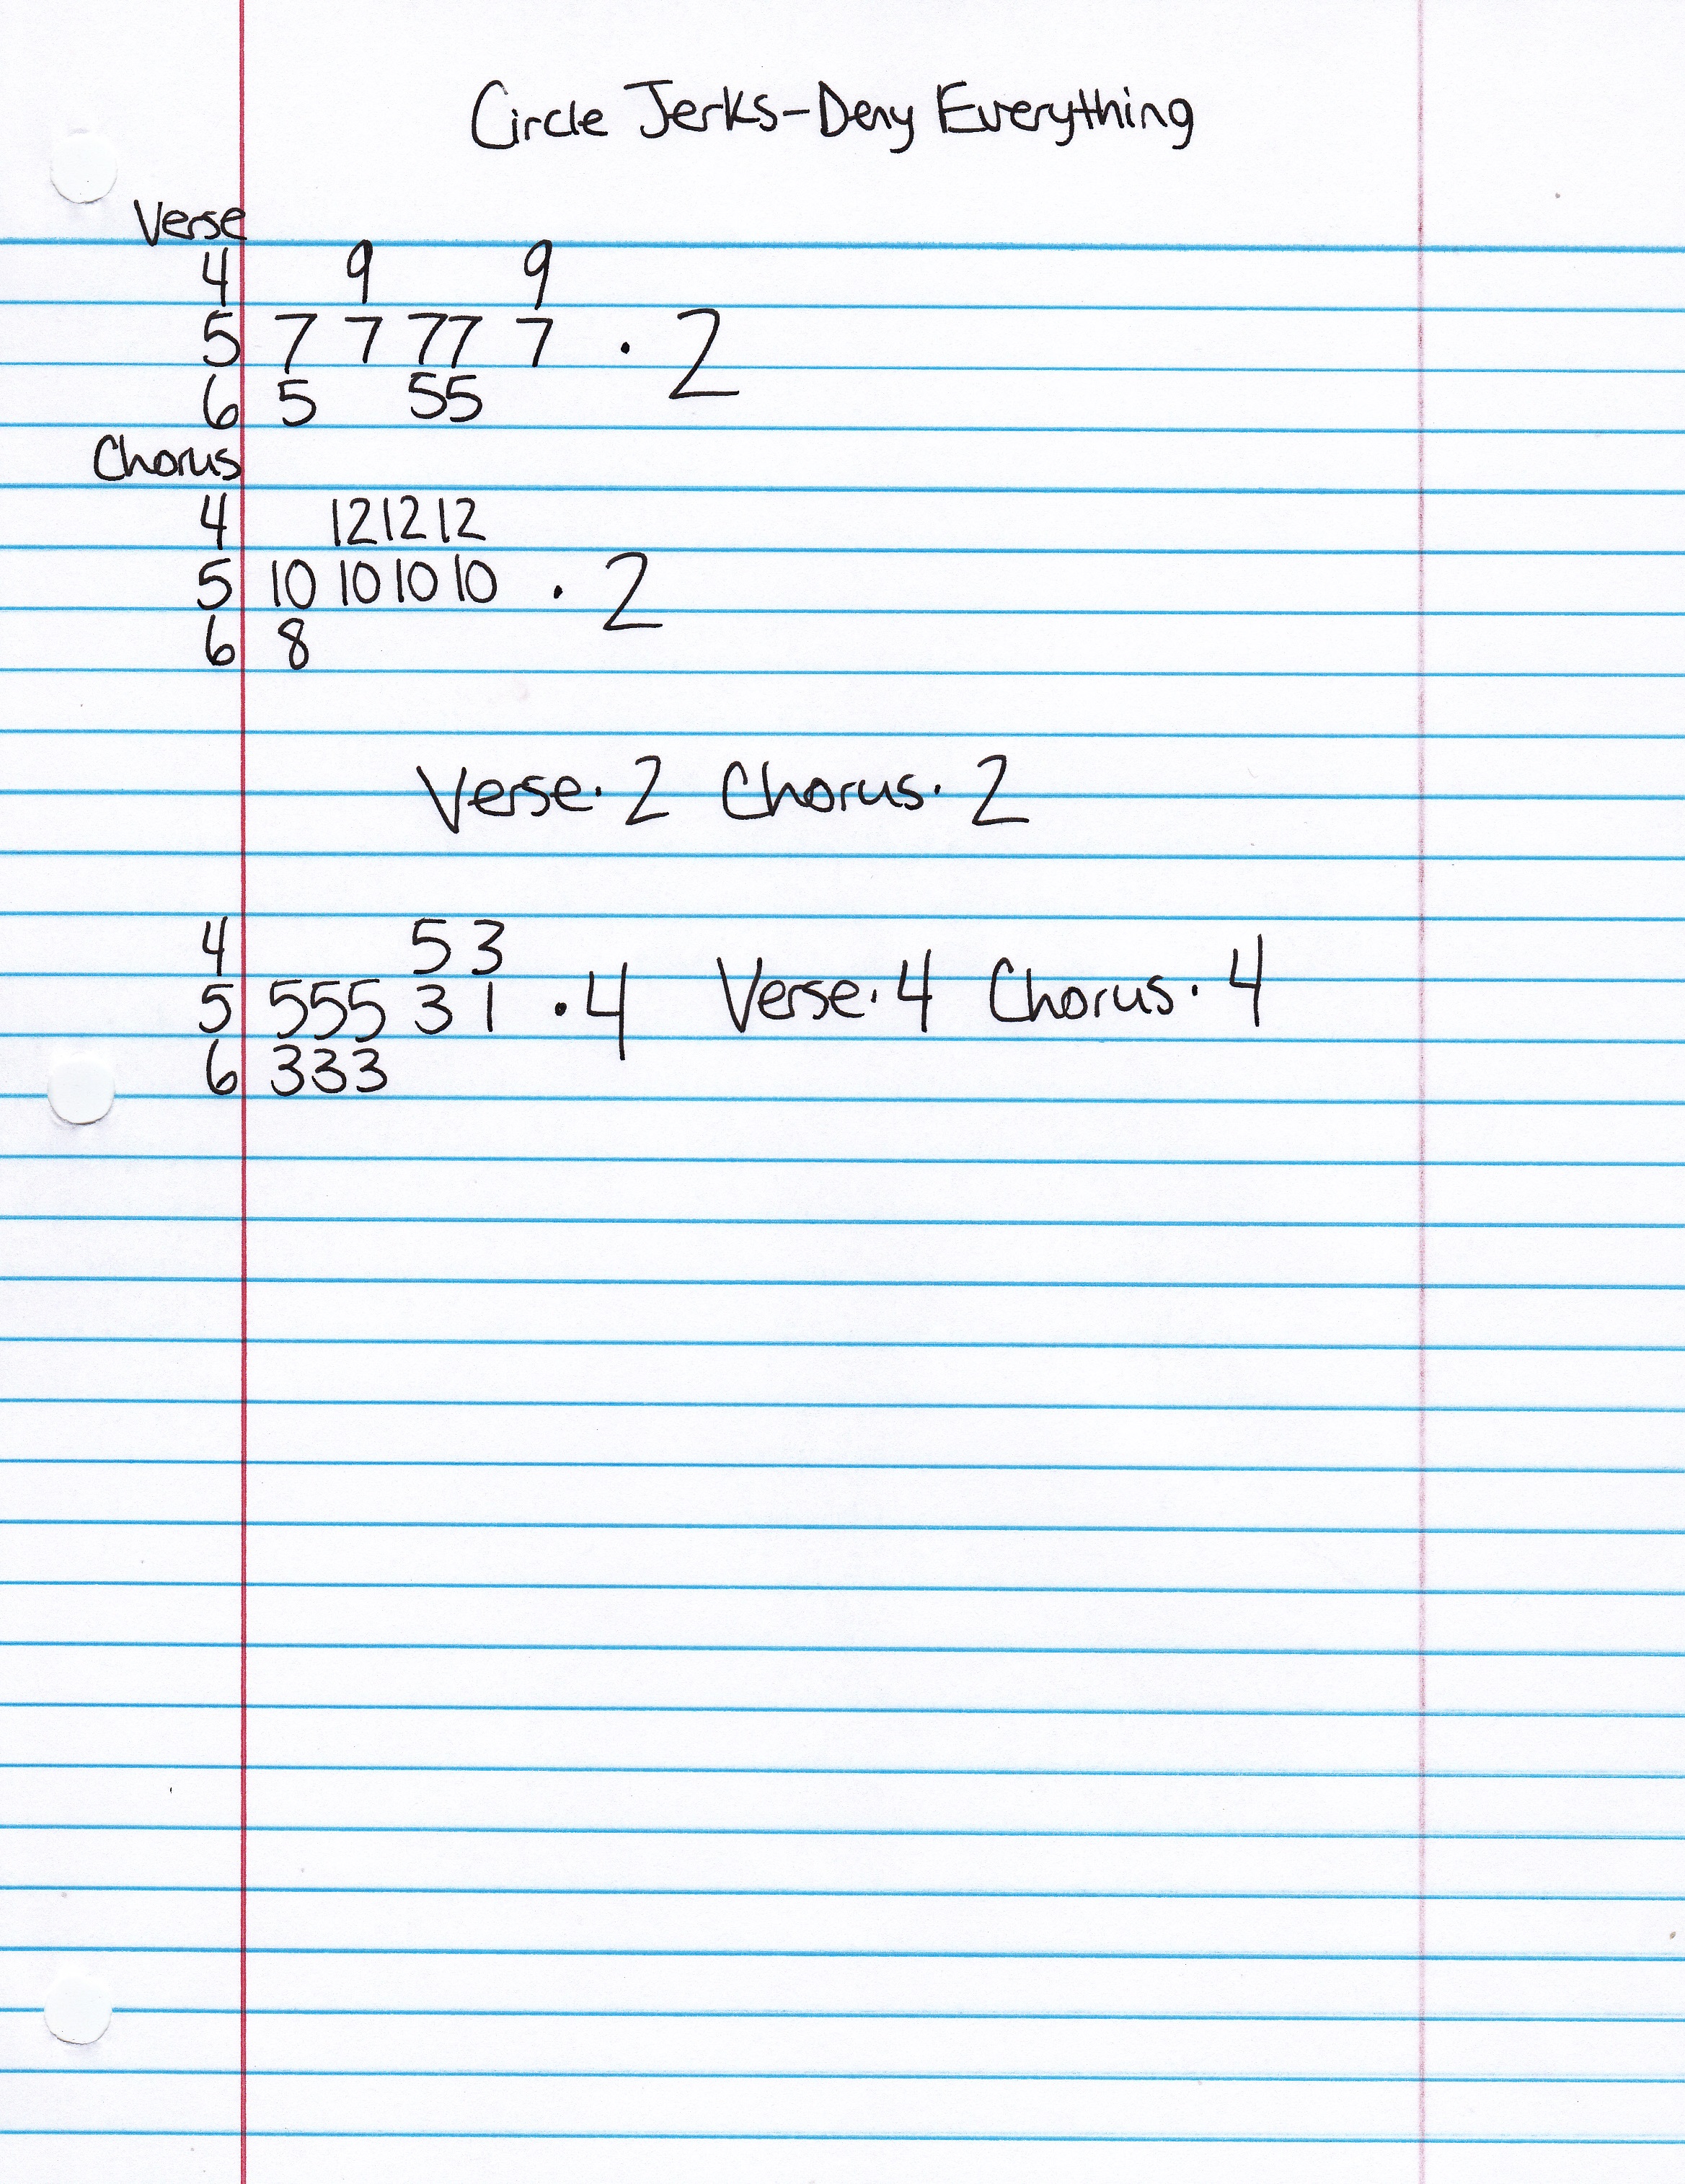 Circle Jerks-Deny Everything
Verse
4 9 9
5 7 7 77 7 · 2
6 5 55
Chorus
4 12 12 12
5 10 10 10 10 · 2
6 8
Verse · 2 Chorus · 2
4 5 3
5 555 3 1 · 4 Verse · 4 Chorus · 4
6 333